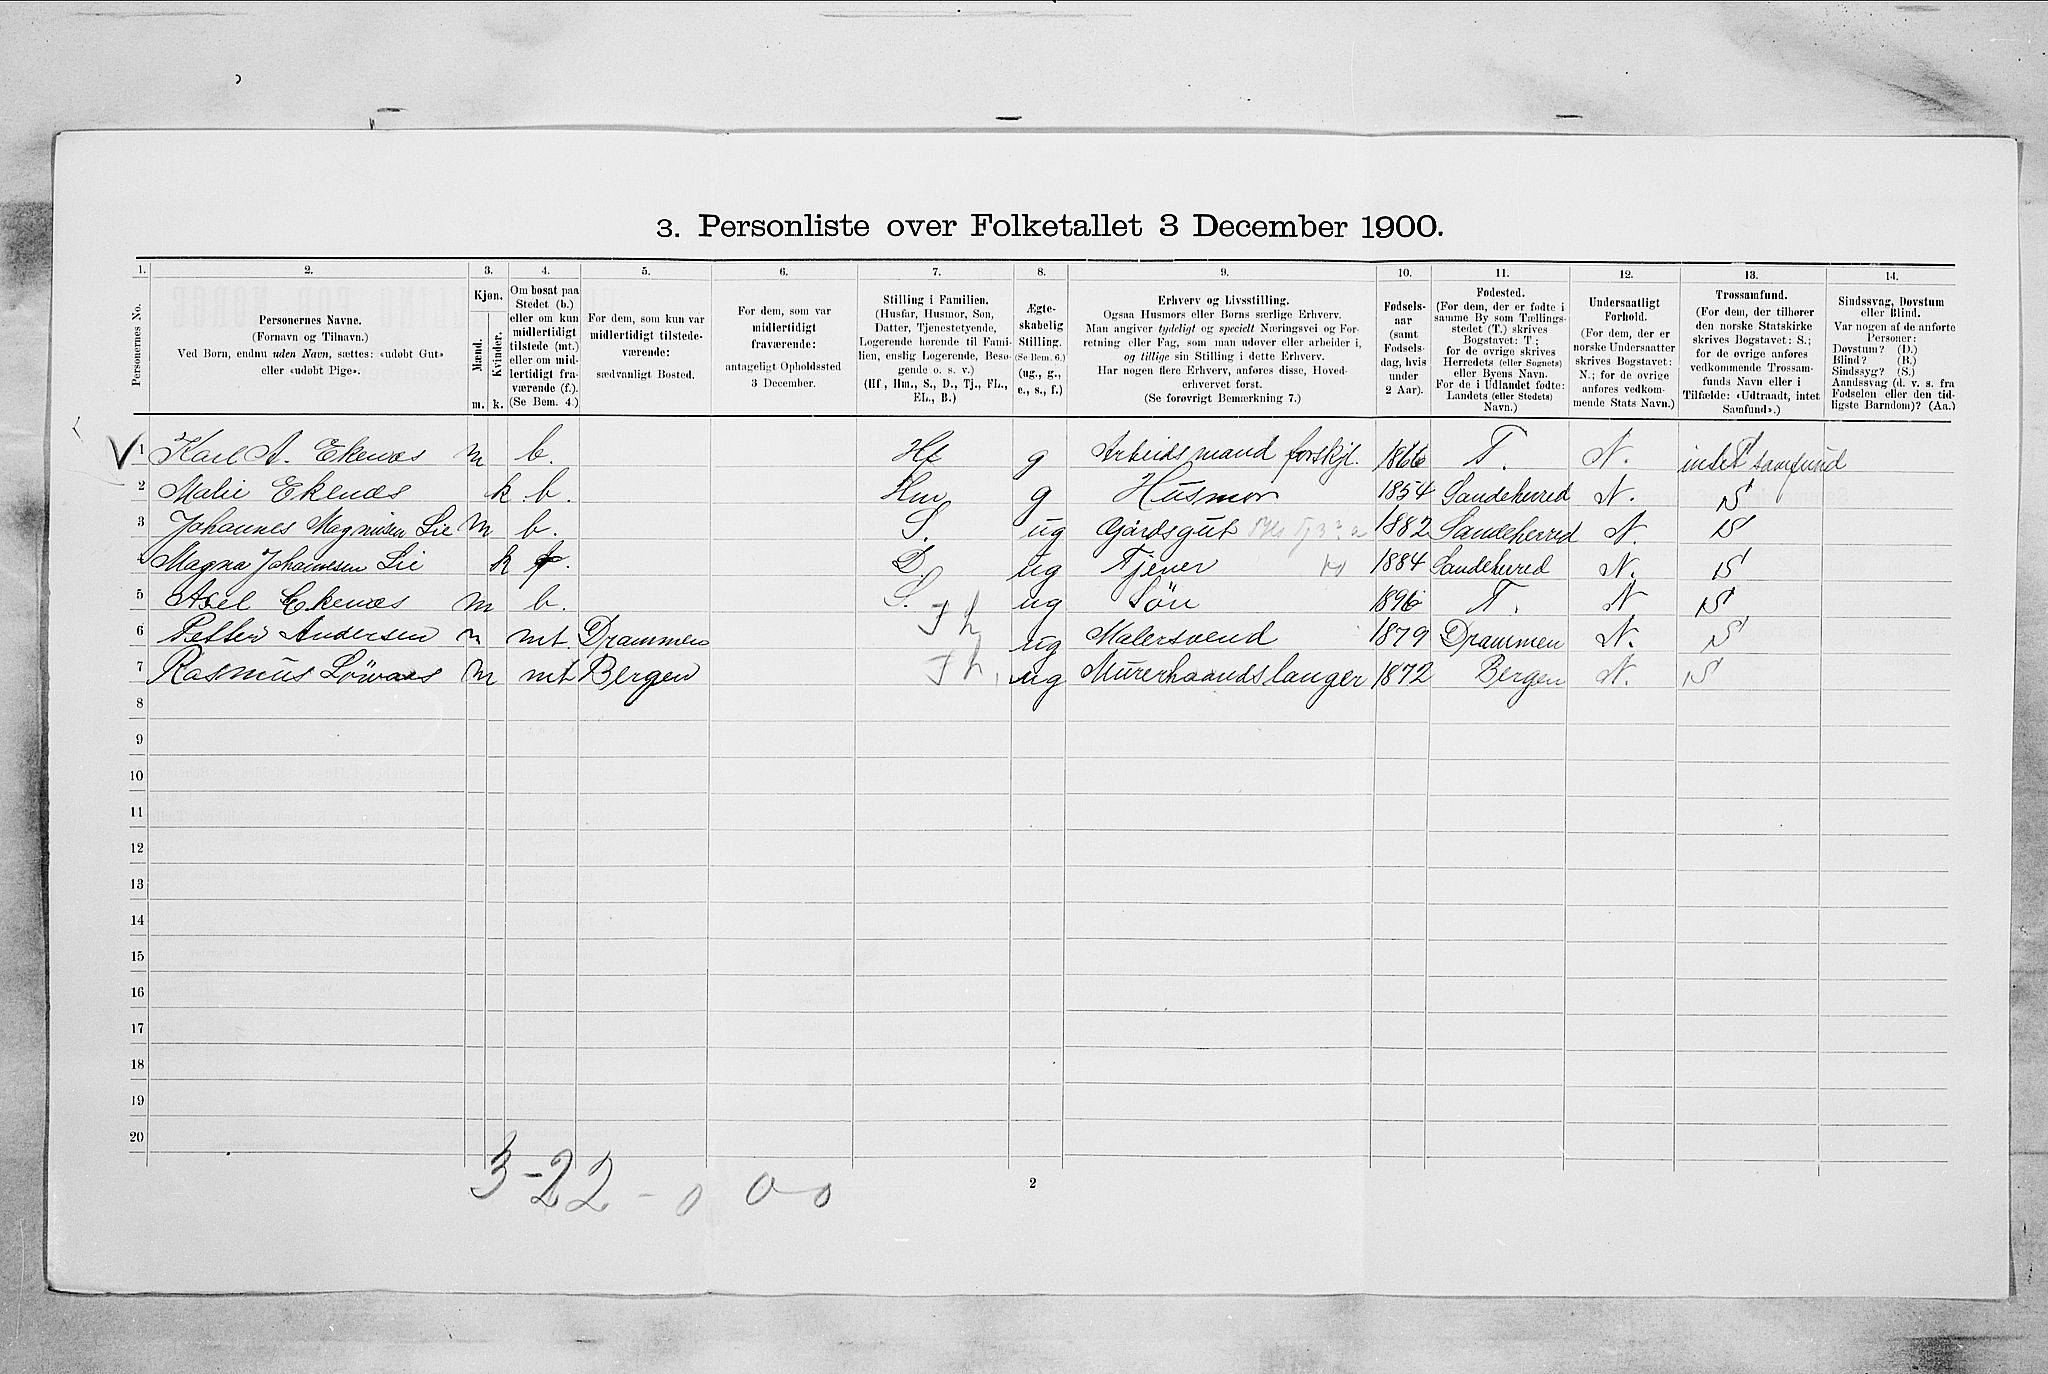 3. Personliste over Folketallet 3 December 1900.
1. 2. 3. 4. 5. 6. 7. 8. 9. 10. 11. 12. 13. 14.
Personernes No.
Personernes Navne.
(Fornavn og Tilnavn.)
Ved Børn, endnu uden Navn, sættes: «udøbt Gut»
eller «udøbt Pige».
Kjøn.
Mænd.
Kvinder.
m. k.
Om bosat paa
Stedet (b.)
eller om kun
midlertidigt
tilstede (mt.)
eller om mid-
lertidigt fra-
værende (f.).
(Se Bem. 4.)
For dem, som kun var
midlertidigt tilstede-
værende:
sædvanligt Bosted.
For dem, som var
midlertidigt
fraværende:
antageligt Opholdssted
3 December.
Stilling i Familien.
(Husfar, Husmor, Søn,
Datter, Tjenestetyende,
Logerende hørende til Fami-
lien, enslig Logerende, Besø-
gende o. s. v.)
(Hf, Hm., S., D., Tj., FL.,
EL., B.)
Ægte-
skabelig
Stilling.
(Se Bem. 6.)
(ug., g.,
e., s., f.)
Erhverv og Livsstilling.
Ogsaa Husmors eller Børns særlige Erhverv.
Man angiver tydeligt og specielt Næringsvei og For-
retning eller Fag, som man udøver eller arbeider i,
og tillige sin Stilling i dette Erhverv.
Har nogen flere Erhverv, anføres disse, Hoved-
erhvervet først.
(Se forøvrigt Bemærkning 7.)
Fødsels-
aar
(samt
Fødsels-
dag, hvis
under
2 Aar).
Fødested.
(For dem, der er fødte i
samme By som Tællings-
stedet (T.) skrives
Bogstavet: T;
for de øvrige skrives
Herredets (eller Sognets)
eller Byens Navn.
For de i Udlandet fødte:
Landets (eller Stedets)
Navn.)
Undersaatligt
Forhold.
(For dem, der er
norske Undersaatter
skrives Bogstavet:
N.; for de øvrige
anføres vedkom-
mende Stats Navn.)
Trossamfund.
(For dem, der tilhører
den norske Statskirke
skrives Bogstavet: S.;
for de øvrige anføres
vedkommende Trossam-
funds Navn eller i
Tilfælde: «Udtraadt, intet
Samfund».)
Sindssvag, Døvstum
eller Blind.
Var nogen af de anførte
Personer:
Døvstum? (D.)
Blind? (B.)
Sindssyg? (S.)
Aandssvag (d. v. s. fra
Fødselen eller den tid-
ligste Barndom)? (Aa.)
1 Karl A. Ekenæs m b. Hf g Arbeidsmand forskjl. 1866 T. N. intet samfund
2 Malie Ekenæs k b. Hm g Husmor 1854 Sandeherred N. S
3 Johannes Magnusen Lie m b. S. ug Gårdsgut 1882 Sandeherred N. S
4 Magna Johannesen Lie k D. ug Tjener 1884 Sandeherred N. S
5 Axel Ekenæs m b. S. ug Sön 1896 T. N S
6 Petter Andersen m mt. Drammen ug Malersvend 1879 Drammen N. S
7 Rasmus Löwaas m mt Bergen ug Murerhaandslanger 1872 Bergen N. S
8
9
10
11
12
13
14
15
16
17
18
19
20
3-22-0 0-0
2